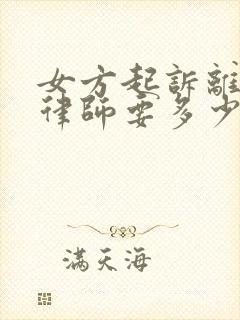 女方起訴離
律師要多少
滿天海